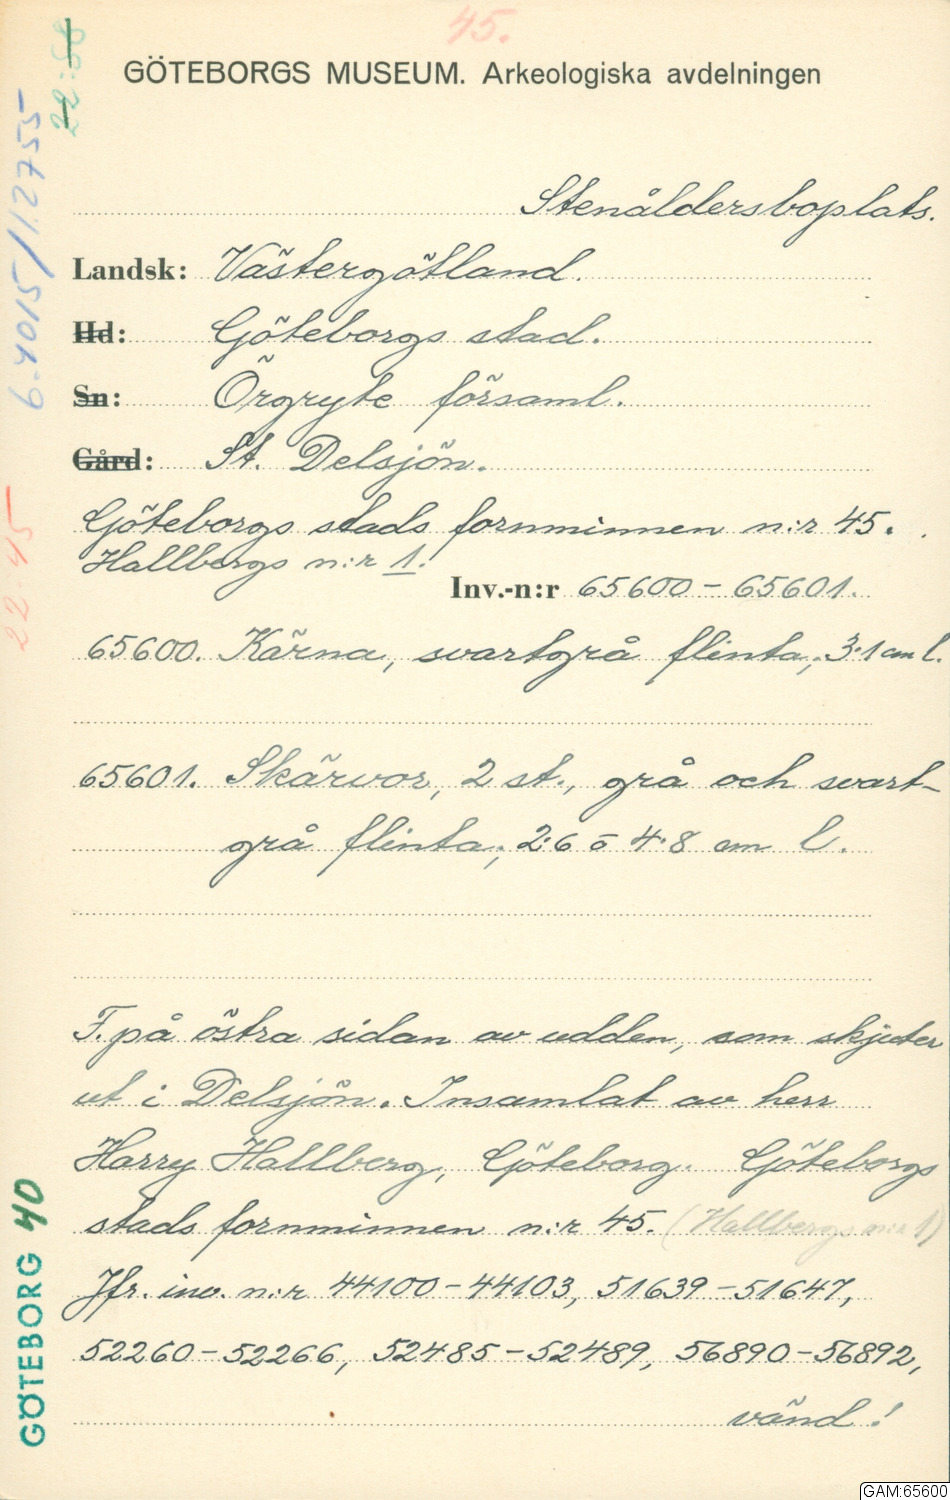 45.
GÖTEBORGS MUSEUM. Arkeologiska avdelningen
Stenåldersboplats.
Landsk: Västergötland.
Hd: Göteborgs stad.
Sn: Örgryte församl.
Gård: St. Delsjön.
Göteborgs stads fornminnen n:r 45.
Hallbergs n:r 1.
Inv.-n:r 65600-65601.
65600. Kärna, svartgrå flinta, 3·1 cm l.
65601. Skärvor, 2 st., grå och svart-
grå flinta, 2·6 o 4·8 cm l.
F. på östra sidan av udden, som skjuter
ut i Delsjön. Insamlat av herr
Harry Hallberg, Göteborg. Göteborgs
stads fornminnen n:r 45. (Hallbergs n:r 1)
Jfr. inv. n:r 44100-44103, 51639-51647,
52260-52266, 52485-52489, 56890-56892,
vänd!
22:58
6.4015/12755
22:45
GÖTEBORG 40
GAM:65600